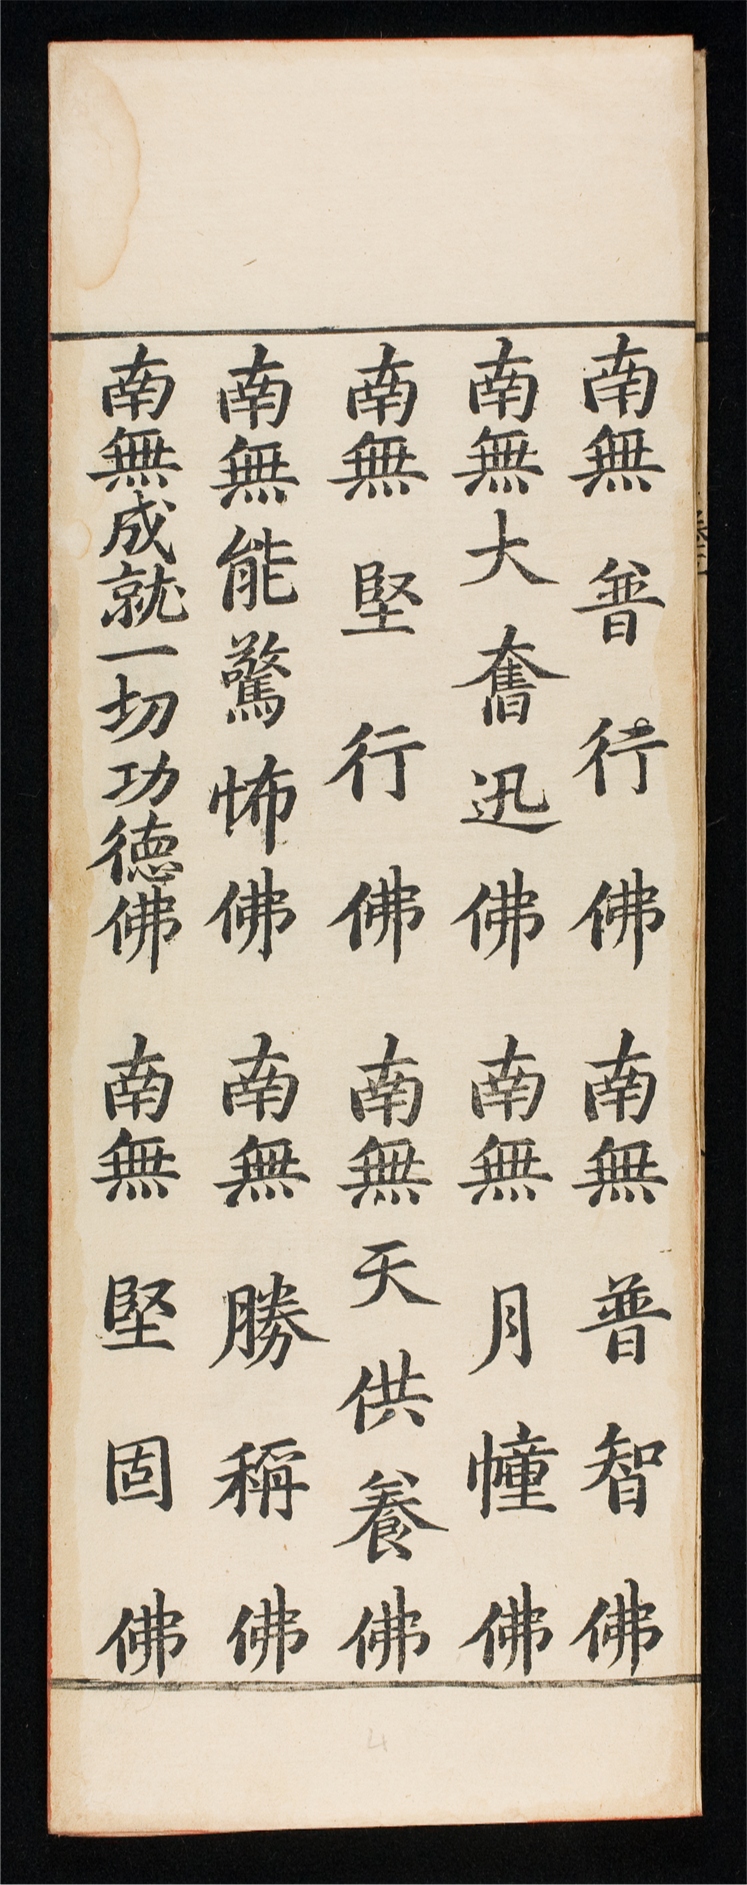 南無普行佛 南無普智佛
南無大奮迅佛 南無月幢佛
南無堅行佛 南無天供養佛
南無能驚怖佛 南無勝稱佛
南無成就一切功德佛 南無堅固佛
4